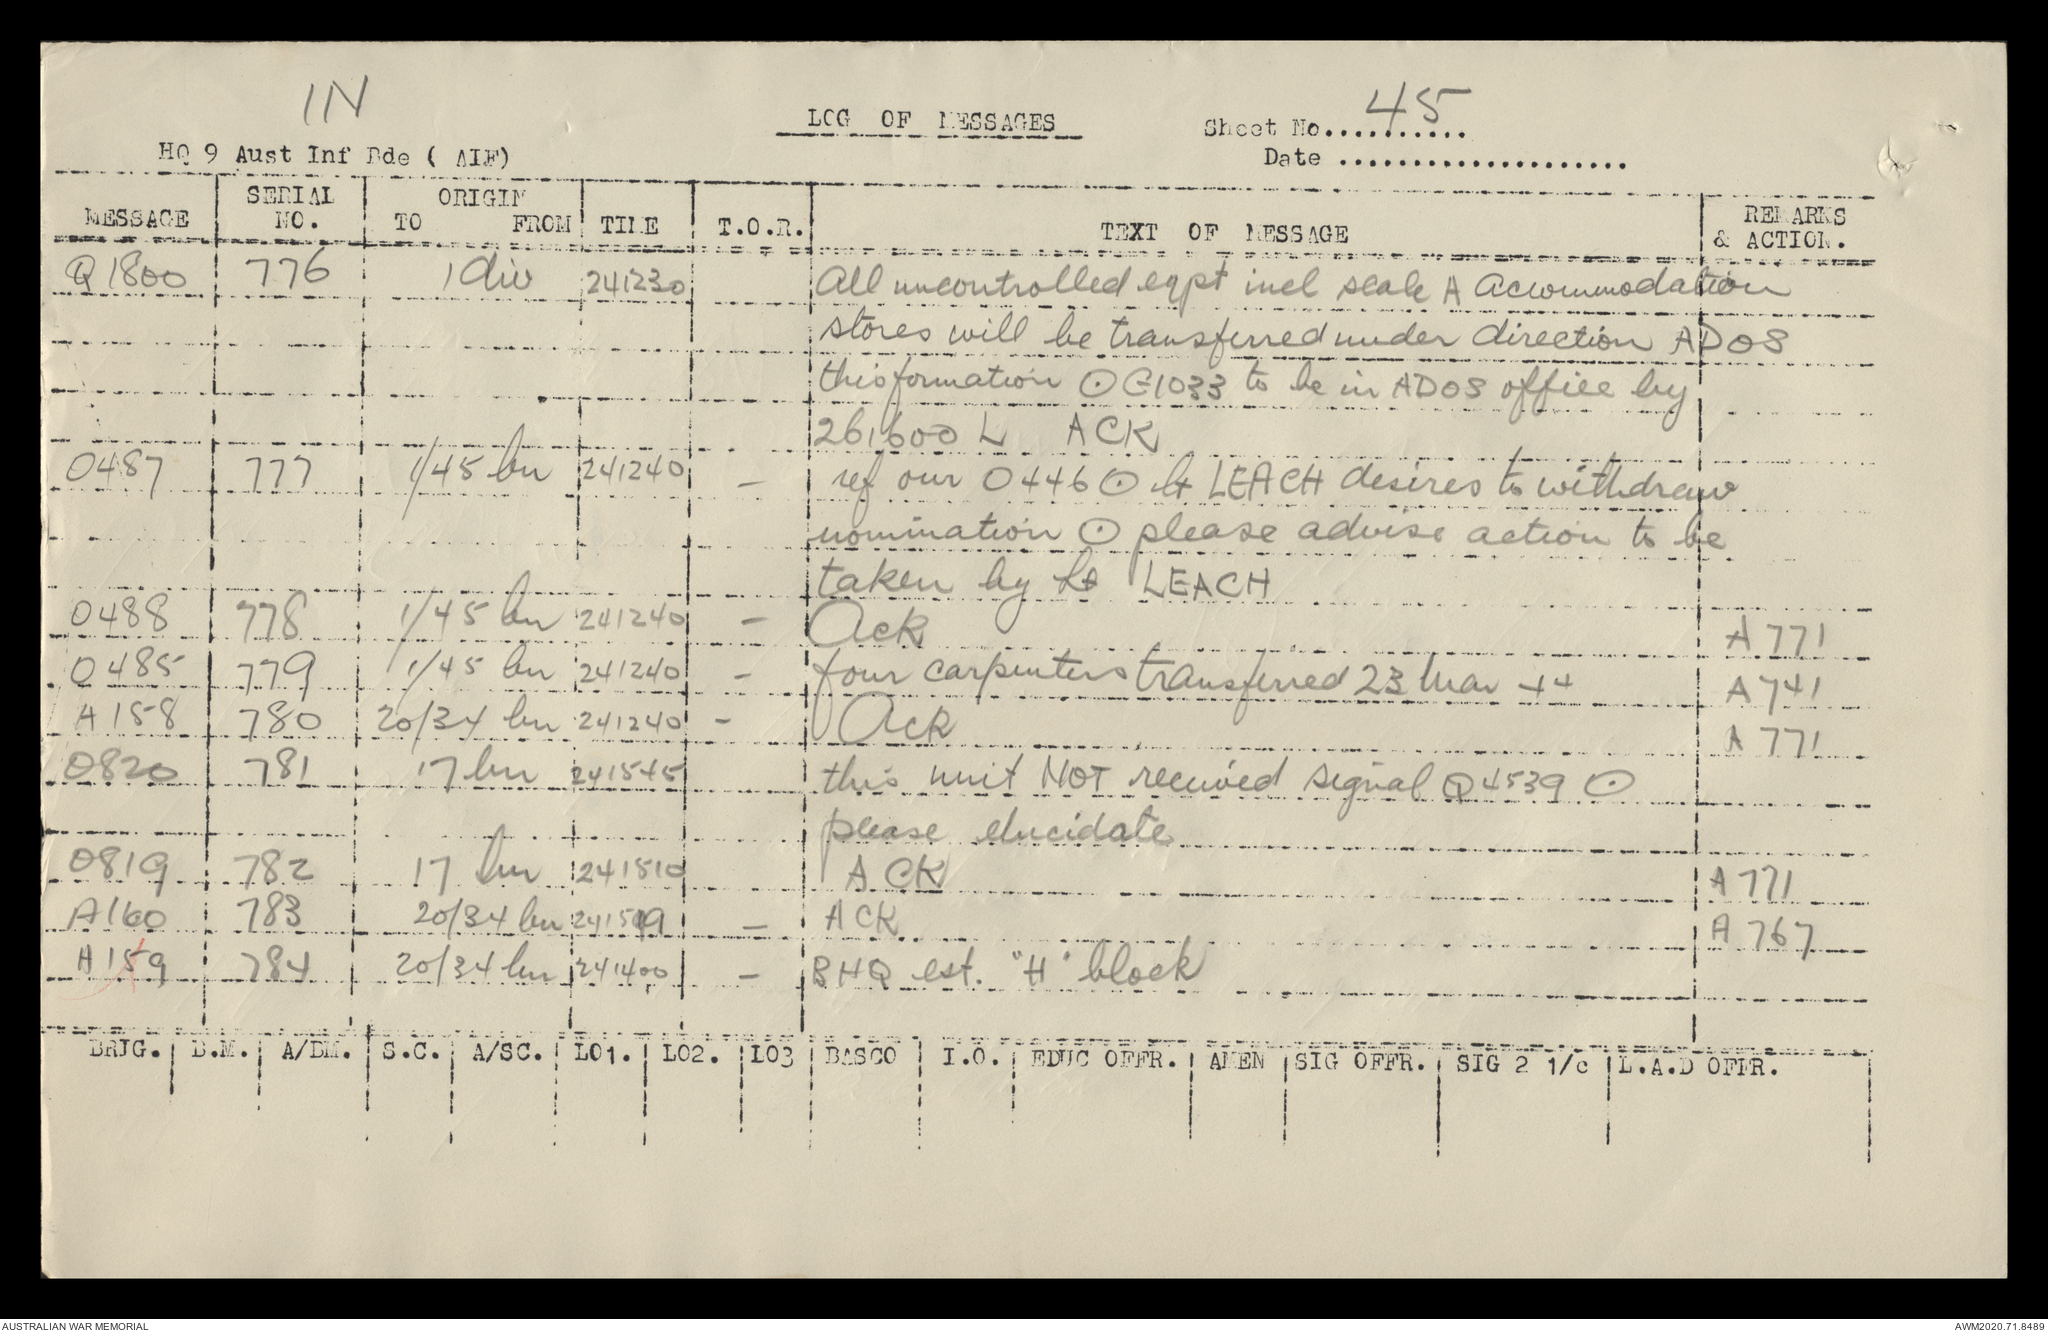 IN
LOG OF MESSAGES
Sheet No.......... 45
HQ 9 Aust Inf Bde ( AIF)
Date ....................
MESSAGE SERIAL NO. ORIGIN TO FROM TIME T.O.R. TEXT OF MESSAGE REMARKS & ACTION.
Q1800 776 1 div 241230 All uncontrolled eqpt incl scale A accommodation
stores will be transferred under direction ADOS
this formation ⊙ G1033 to be in ADOS office by
261600 L ACK
0487 777 1/45 bn 241240 - ref our 0446 ⊙ Lt LEACH desires to withdraw
nomination ⊙ please advise action to be
taken by Lt LEACH
0488 778 1/45 bn 241240 - Ack A 771
0485 779 1/45 bn 241240 - four carpenters transferred 23 Mar 44 A 741
A 158 780 20/34 bn 241240 - Ack A 771
0820 781 17 bn 241545 this unit NOT received signal Q4539 ⊙
please elucidate
0819 782 17 bn 241510 ACK A 771
A160 783 20/34 bn - ACK A 767
A159 784 20/34 bn 241400 - BHQ est. "H" block
BRIG. B.M. A/BM. S.C. A/SC. LO1. LO2. LO3 BASCO I.O. EDUC OFFR. AMEN SIG OFFR. SIG 2 1/c L.A.D OFFR.
AUSTRALIAN WAR MEMORIAL
AWM2020.71.8489